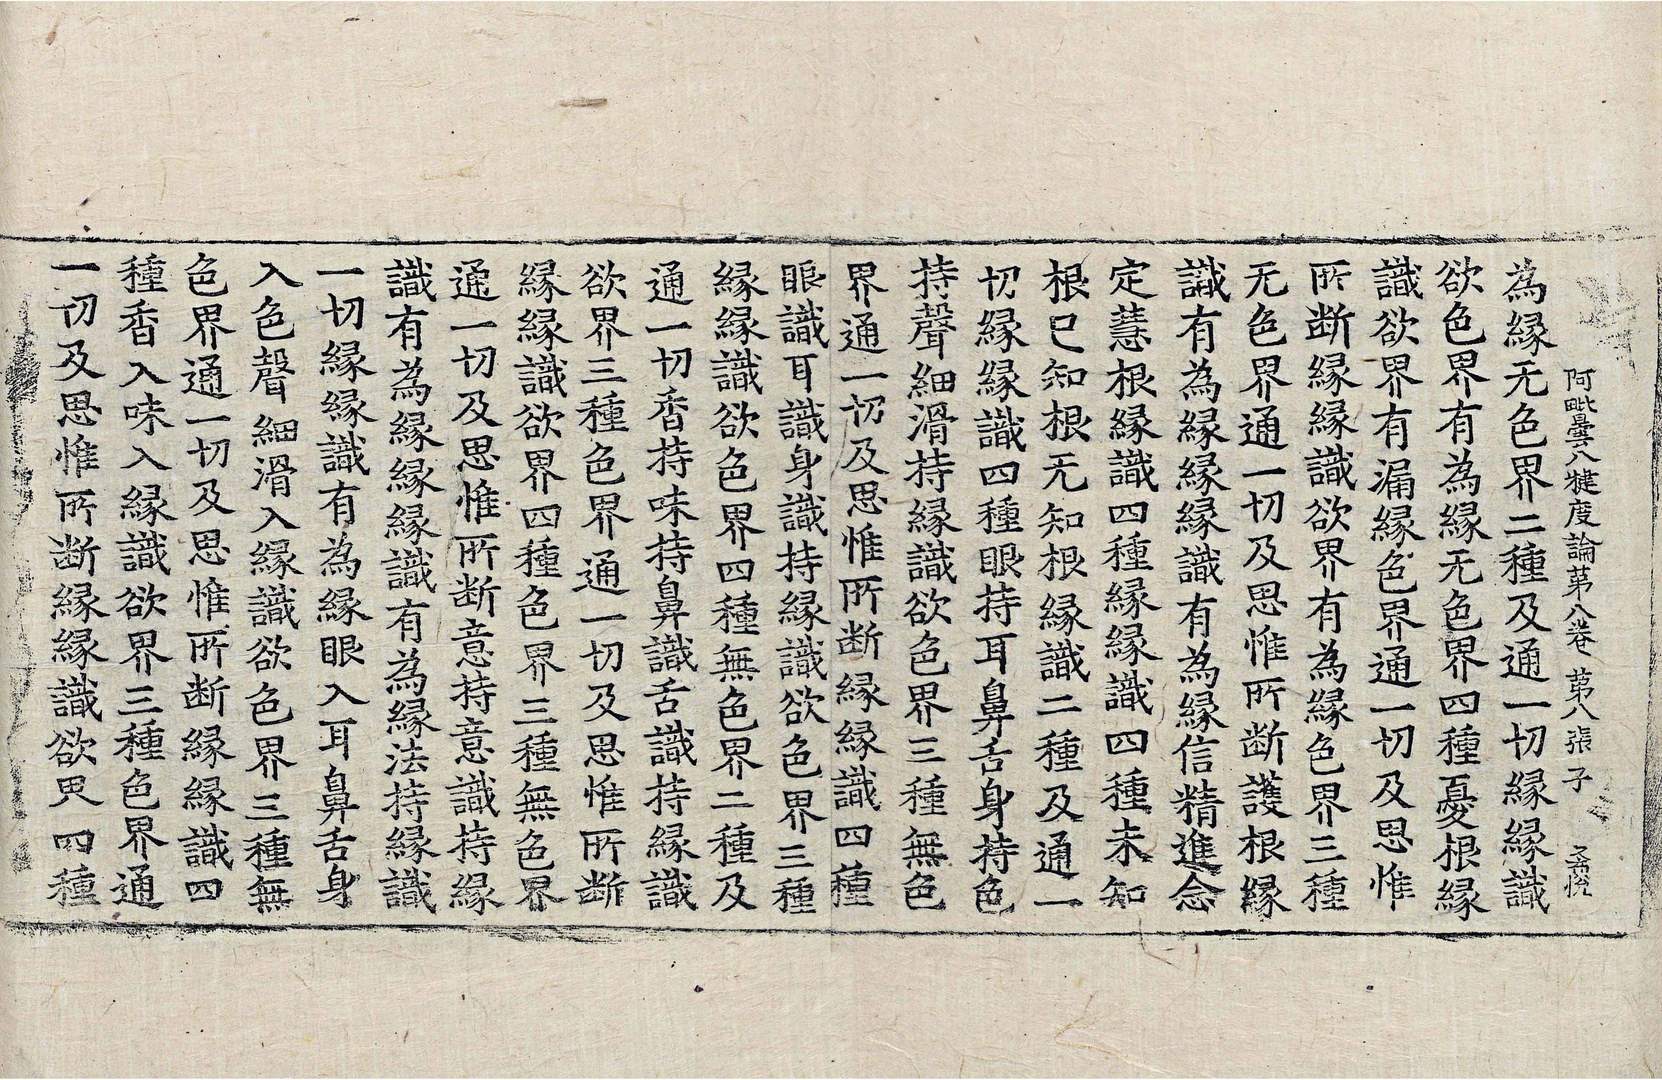 阿毗曇八犍度論第八卷 第八張 子
為縁无色界二種及通一切縁縁識
欲色界有為縁无色界四種憂根縁
識欲界有漏縁色界通一切及思惟
所断縁縁識欲界有為縁色界三種
无色界通一切及思惟所断護根縁
識有為縁縁縁識有為縁信精進念
定慧根縁識四種縁縁識四種未知
根已知根无知根縁識二種及通一
切縁縁識四種眼持耳鼻舌身持色
持聲細滑持縁識欲色界三種無色
界通一切及思惟所断縁縁識四種
眼識耳識身識持縁識欲色界三種
縁縁識欲色界四種無色界二種及
通一切香持味持鼻識舌識持縁識
欲界三種色界通一切及思惟所断
縁縁識欲界四種色界三種無色界
通一切及思惟所断意持意識持縁
識有為縁縁縁識有為縁法持縁識
一切縁縁識有為縁眼入耳鼻舌身
入色聲細滑入縁識欲色界三種無
色界通一切及思惟所断縁縁識四
種香入味入縁識欲界三種色界通
一切及思惟所断縁縁識欲界四種